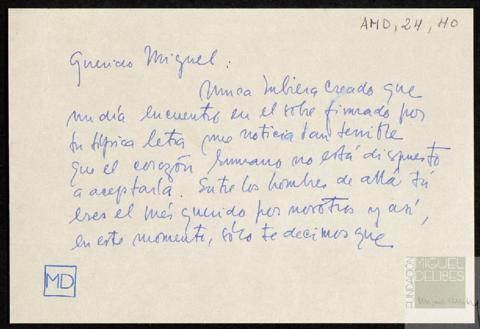 AMD, 24, 110
Querido Miguel:
Nunca hubiera creado que
un día encuentro en el sobre firmado por
tu típica letra una noticia tan terrible
que el corazón humano no está dispuesto
a aceptarla. Entre los hombres de allá tú
eres el más querido por nosotros y así,
en este momento, sólo te decimos que
MD
FUNDACIÓN
MIGUEL
DELIBES